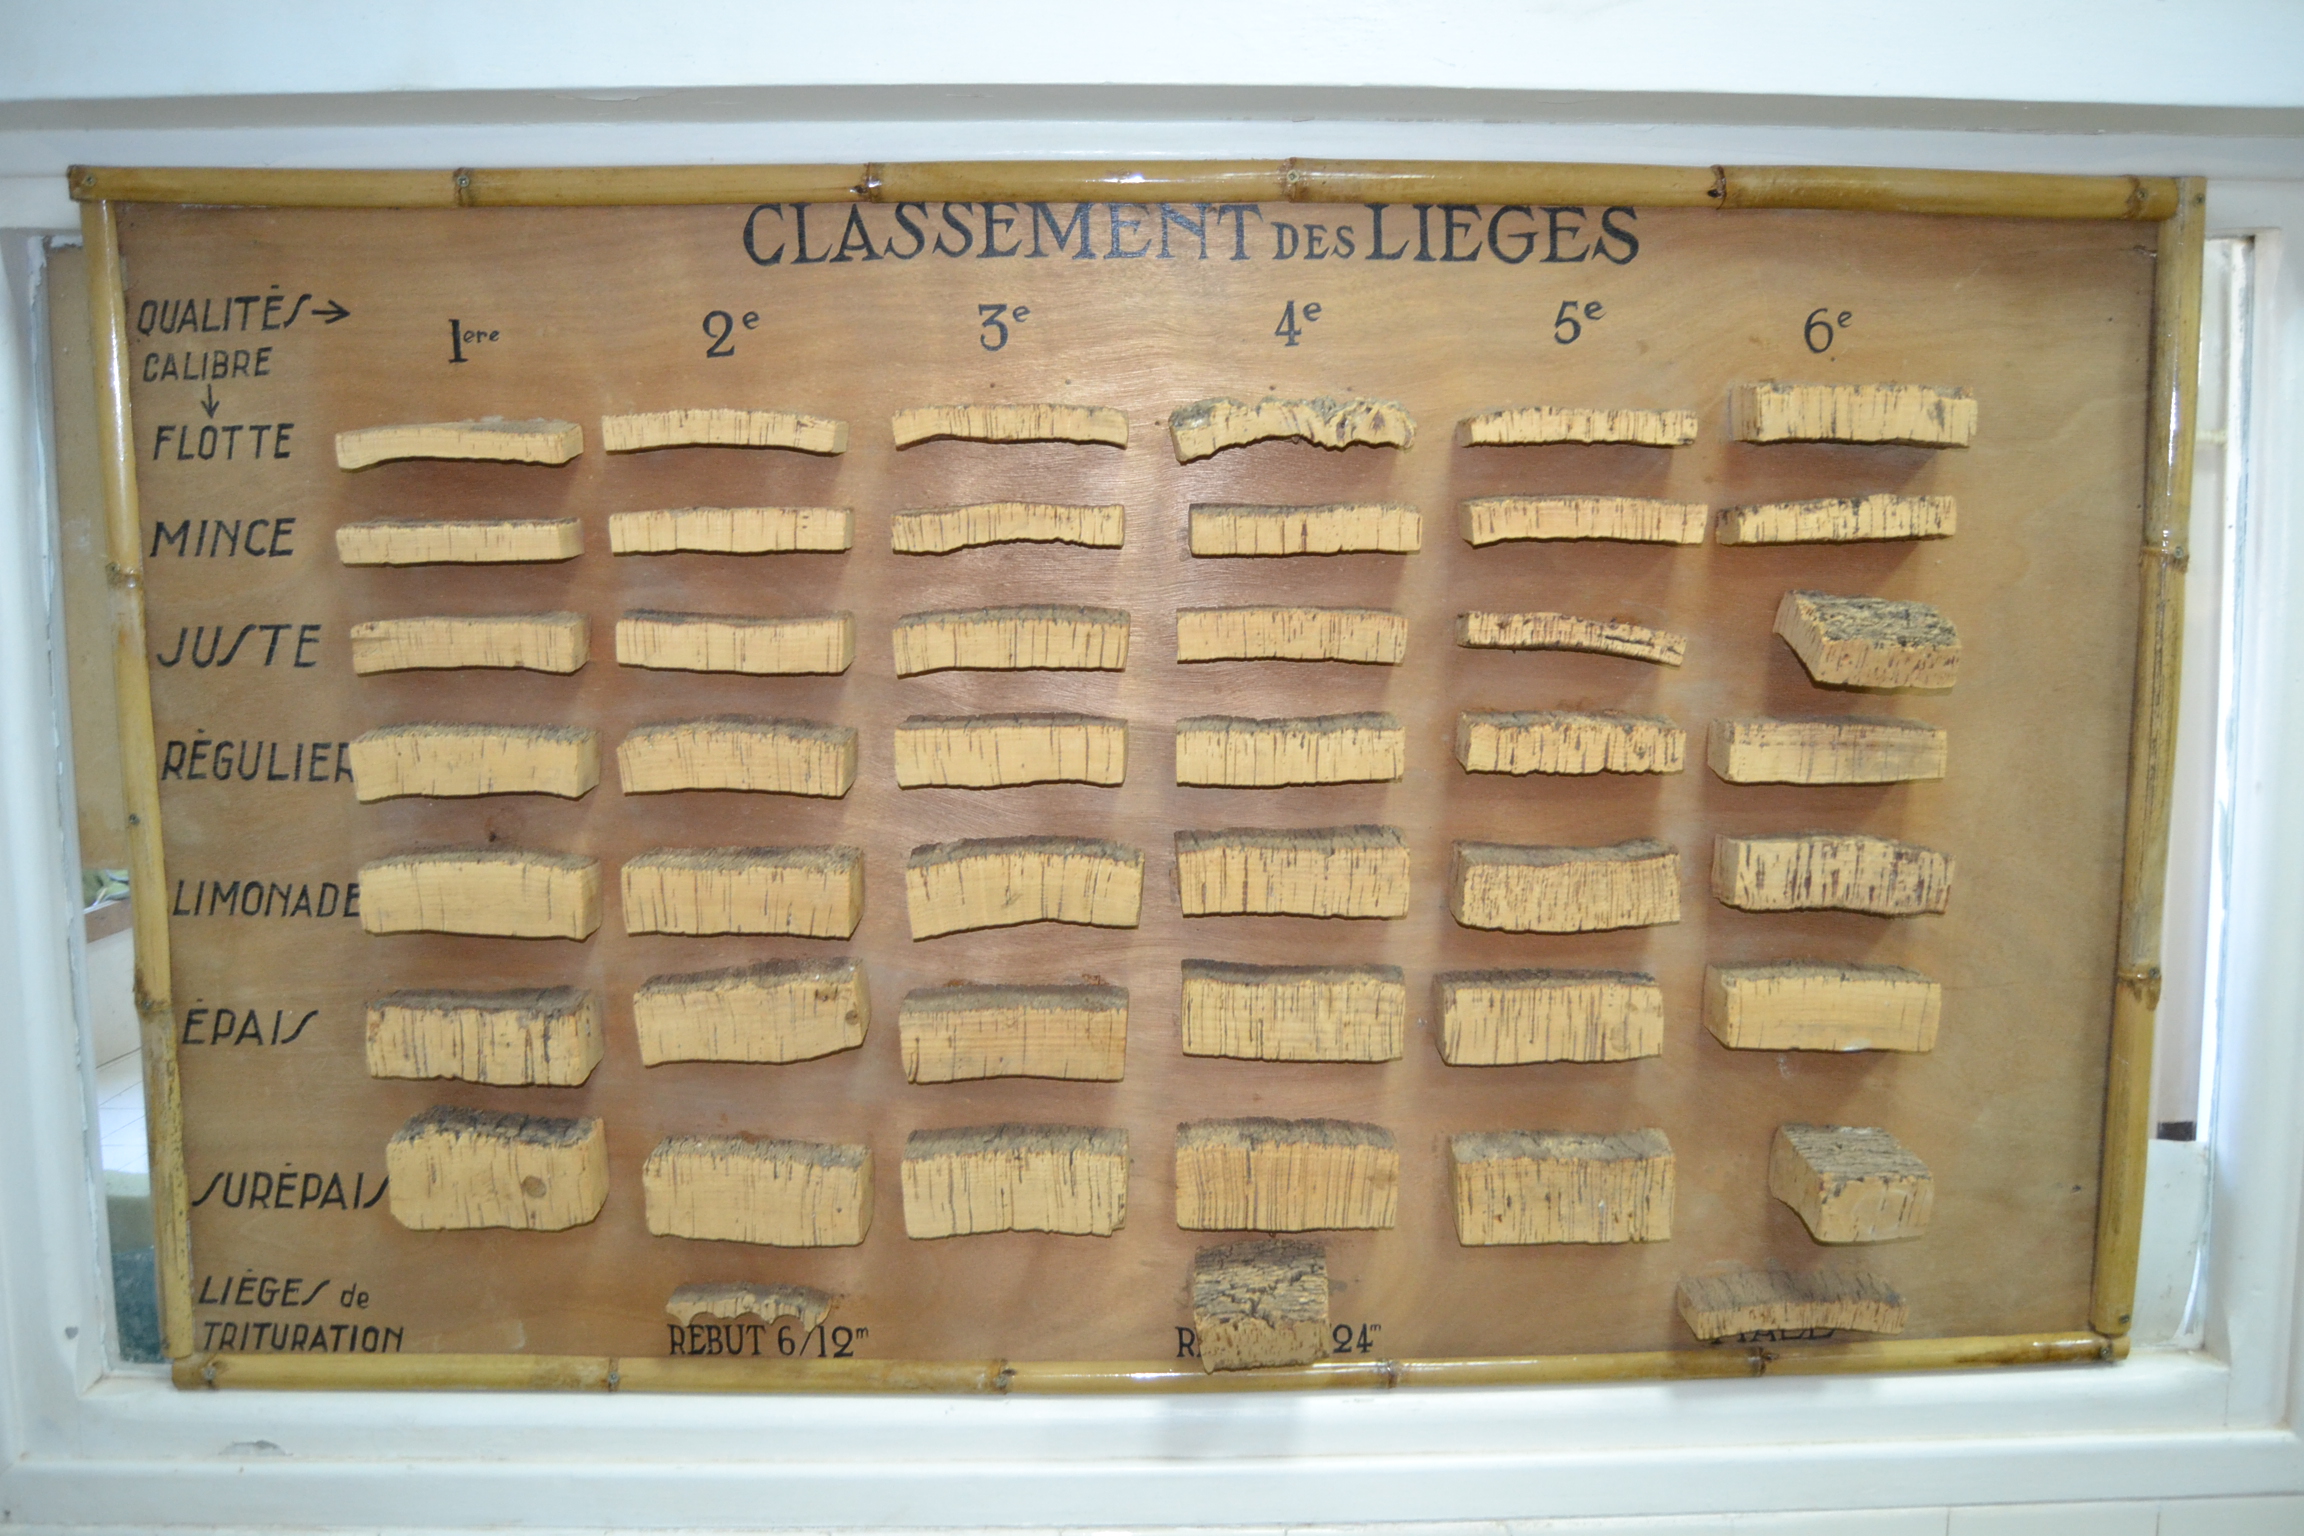 CLASSEMENT DES LIEGES
QUALITÉS →
1ere 2e 3e 4e 5e 6e
CALIBRE
↓
FLOTTE
MINCE
JUSTE
RÉGULIER
LIMONADE
ÉPAIS
SURÉPAIS
LIÈGES de
TRITURATION
REBUT 6/12m
24m